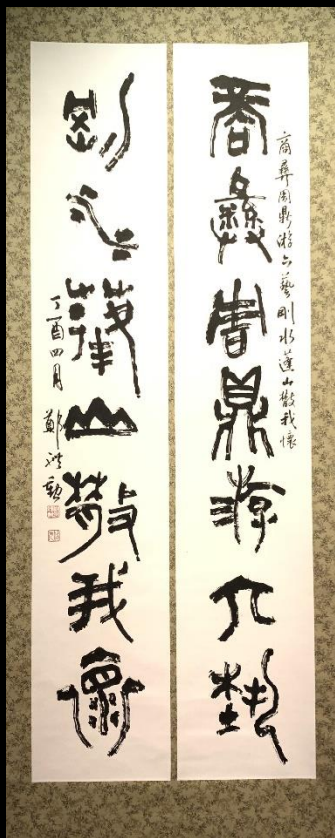 商彝周鼎游六藝
商彝周鼎游六藝剛水蓬山散我懷
剛水蓬山散我懷
丁酉四月 鄭禮勳